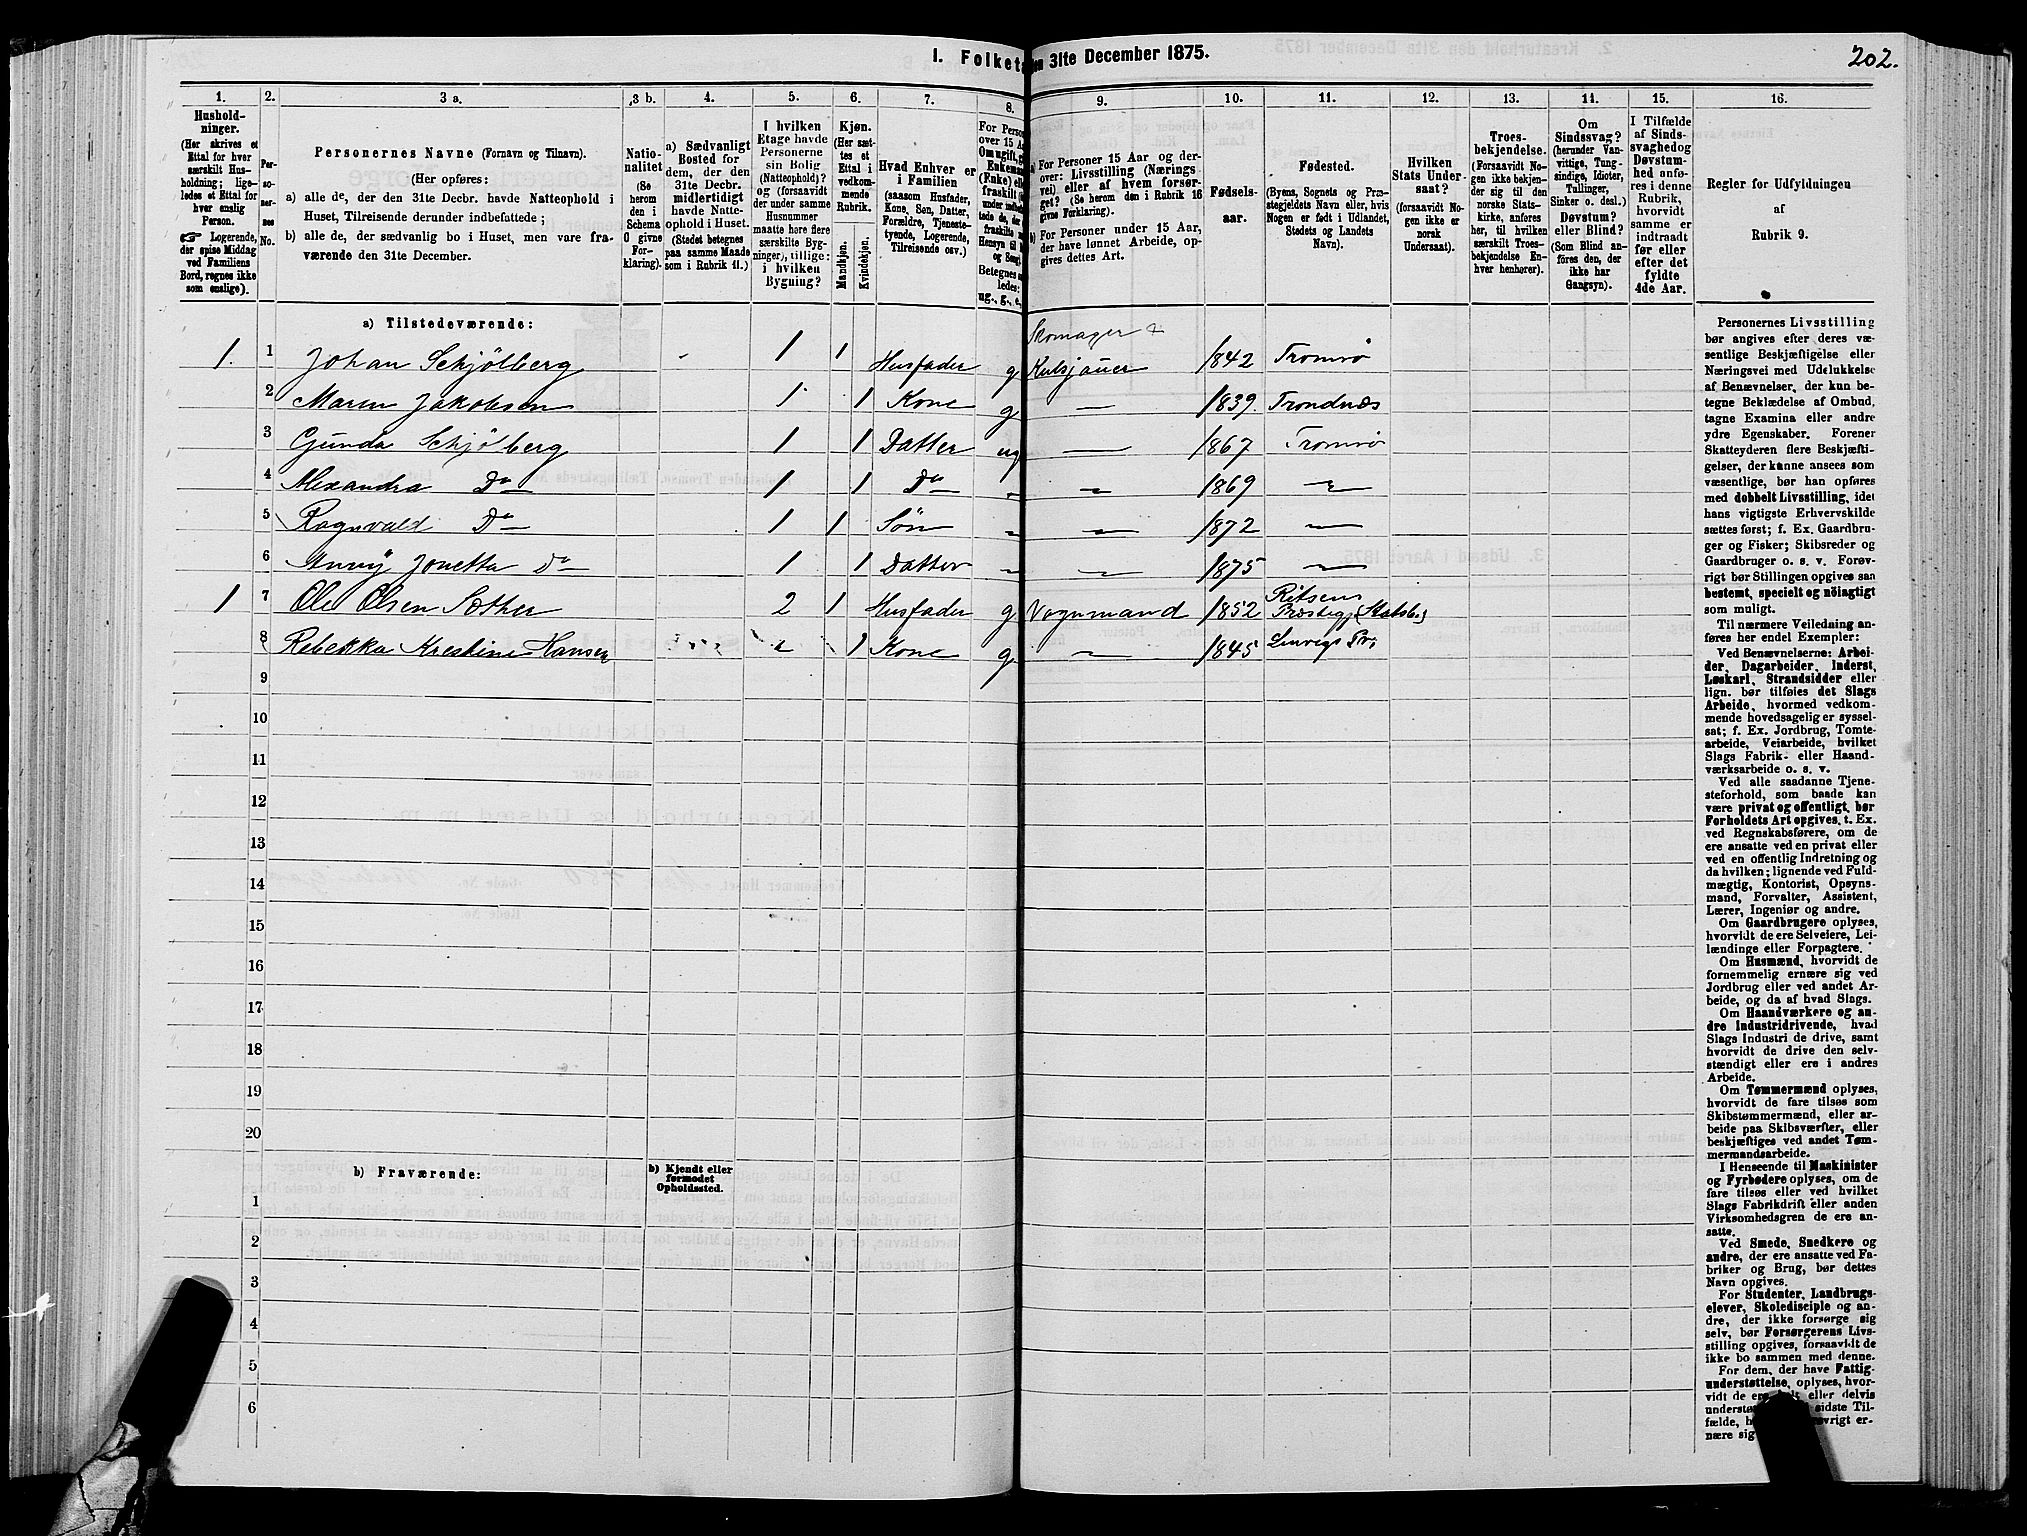 I. Folketæ
en 31te December 1875.
202.
1.
2.
3 a.
3 b.
4.
5.
6.
7.
8.
9.
10.
11.
12.
13.
14.
15.
16.
Hushold-
ninger.
(Her skrives et
Ettal for hver
særskilt Hus-
holdning; lige-
ledes et Ettal for
hver enslig
Person.
☞ Logerende,
der spise Middag
ved Familiens
Bord, regnes ikke
som enslige).
Per-
so-
ner-
nes
No.
Personernes Navne (Fornavn og Tilnavn).
(Her opføres:
a) alle de, der den 31te Decbr. havde Natteophold i
Huset, Tilreisende derunder indbefattede;
b) alle de, der sædvanlig bo i Huset, men vare fra-
værende den 31te December.
Natio-
nalitet
(Se
herom
den i
Schema
0 givne
For-
klaring).
a) Sædvanligt
Bosted for
dem, der den
31te Decbr.
midlertidigt
havde Natte-
ophold i Huset.
(Stedet betegnes
paa samme Maade
som i Rubrik 11.)
I hvilken
Etage havde
Personerne
sin Bolig
(Natteophold)?
og (forsaavidt
der under samme
Husnummer
maatte høre flere
særskilte Byg-
ninger), tillige:
i hvilken
Bygning?
Kjøn.
(Her sæt-
tes et
Ettal i
vedkom-
mende
Rubrik.
Mandkjøn.
Kvindekjøn.
Hvad Enhver er
i Familien
(saasom Husfader,
Kone, Søn, Datter,
Forældre, Tjeneste-
tyende, Logerende,
Tilreisende osv.)
For Person
over 15 Aa
Om ugift, g
Enkema
(Enke) ell
fraskilt
Hensyn til
og Seng
Betegnes
ledes:
ug., g., e.,
a) For Personer 15 Aar og der-
over: Livsstilling (Nærings
vei) eller af hvem forsør-
get? (Se herom den i Rubrik 16
givne Forklaring).
b) For Personer under 15 Aar,
der have lønnet Arbeide, op-
gives dettes Art.
Fødsels-
aar.
Fødested.
(Byens, Sognets og Præ-
stegjeldets Navn eller, hvis
Nogen er født i Udlandet,
Stedets og Landets
Navn).
Hvilken
Stats Under-
saat?
(forsaavidt No-
gen ikke er
norsk
Undersaat).
Troes-
bekjendelse.
(Forsaavidt No-
gen ikke bekjen-
der sig til den
norske Stats-
kirke, anføres
her, til hvilken
særskilt Troes-
bekjendelse En-
hver henhører).
Om
Sindssvag?
(herunder Van-
vittige, Tung-
sindige, Idioter,
Tullinger,
Sinker o. desl.)
Døvstum?
eller Blind?
(Som Blind an-
føres den, der
ikke har
Gangsyn).
I Tilfælde
af Sinds-
svaghed og
Døvstum-
hed anfø-
res i denne
Rubrik,
hvorvidt
samme er
indtraadt
før eller
efter det
fyldte
4de Aar.
Regler for Udfyldningen
af
Rubrik 9.
a) Tilstedeværende:
1. 1 Johan Schjølberg - 1 1 Husfader g Skomager + Kulsjauer 1842 Tromsø
2 Maren Jakobsen 1 1 Kone g — 1839. Trondnæs
3 Gunda Schjølberg 1 1 Datter ug — 1867 Tromsø
4 Alexandra Do 1 1 Do — — 1869 —
5 Ragnvald Do 1 1 Søn — — 1872 —
6 Anny Jonetta Do 1 1 Datter — — 1875 —
1 7 Ole Olsen Sæther 2 1 Husfader g Vognmand 1852 Ritsens Præstegj (Statsb.)
8 Rebekka Krestine Hansen 2 1 Kone g — 1845 Lenvigs Pr.
9
10
11
12
13
14
15
16
17
18
19
20
b) Fraværende:
b) Kjendt eller
formodet
Opholdssted.
1
2
3
4
5
6
Personernes Livsstilling
bør angives efter deres væ-
sentlige Beskjæftigelse eller
Næringsvei med Udelukkelse
af Benævnelser, der kun be-
tegne Beklædelse af Ombud,
tagne Examina eller andre
ydre Egenskaber. Forener
Skatteyderen flere Beskjæfti-
gelser, der kanne ansees som
væsentlige, bør han opføres
med dobbelt Livsstilling, idet
hans vigtigste Erhvervskilde
sættes først; f. Ex. Gaardbru-
ger og Fisker; Skibsreder og
Gaardbruger o. s. v. Forøv-
rigt bør Stillingen opgives saa
bestemt, specielt og nøiagtigt
som muligt.
Til nærmere Veiledning an-
føres her endel Exempler:
Ved Benævnelserne: Arbei-
der, Dagarbeider, Inderst,
Løskarl, Strandsidder eller
lign. bør tilføies det Slags
Arbeide, hvormed vedkom-
mende hovedsagelig er syssel-
sat; f. Ex. Jordbrug, Tomte-
arbeide, Veiarbeide, hvilket
Slags Fabrik- eller Haand-
værksarbeide o. s. v.
Ved alle saadanne Tjene-
steforhold, som baade kan
være privat og offentligt, bør
Forholdets Art opgives, t. Ex.
ved Regnskabsførere, om de
ere ansatte ved en privat eller
ved en offentlig Indretning og
da hvilken; lignende ved Fuld-
mægtig, Kontorist, Opsyns-
mand, Forvalter, Assistent,
Lærer, Ingeniør og andre.
Om Gaardbrugere oplyses,
hvorvidt de ere Selveiere, Lei-
lændinge eller Forpagtere.
Om Husmænd, hvorvidt de
fornemmelig ernære sig ved
Jordbrug eller ved andet Ar-
beide, og da af hvad Slags.
Om Haandværkere og an-
dre Industridrivende, hvad
Slags Industri de drive, samt
hvorvidt de drive den selv-
stændigt eller ere i andres
Arbeide.
Om Tømmermænd oplyses,
hvorvidt de fare tilsøs som
Skibstømmermænd, eller ar-
beide paa Skibsværfter, eller
beskjæftiges ved andet Tøm-
mermandsarbeide.
I Henseende til Maskinister
og Fyrbødere oplyses, om de
fare tilsøs eller ved hvilket
Slags Fabrikdrift eller anden
Virksomhedsgren de ere an-
satte.
Ved Smede, Snedkere og
andre, der ere ansatte ved Fa-
briker og Brug, bør dettes
Navn opgives.
For Studenter, Landbrugs-
elever, Skoledisciple og an-
dre, der ikke forsørge sig
selv, bør Forsørgerens Livs-
stilling opgives, forsaavidt de
ikke bo sammen med denne.
For dem, der have Fattig-
understøttelse, oplyses, hvor-
vidt de ere helt eller delvis
underst sidste Til-
fælde, h vrigt er-
nære sig